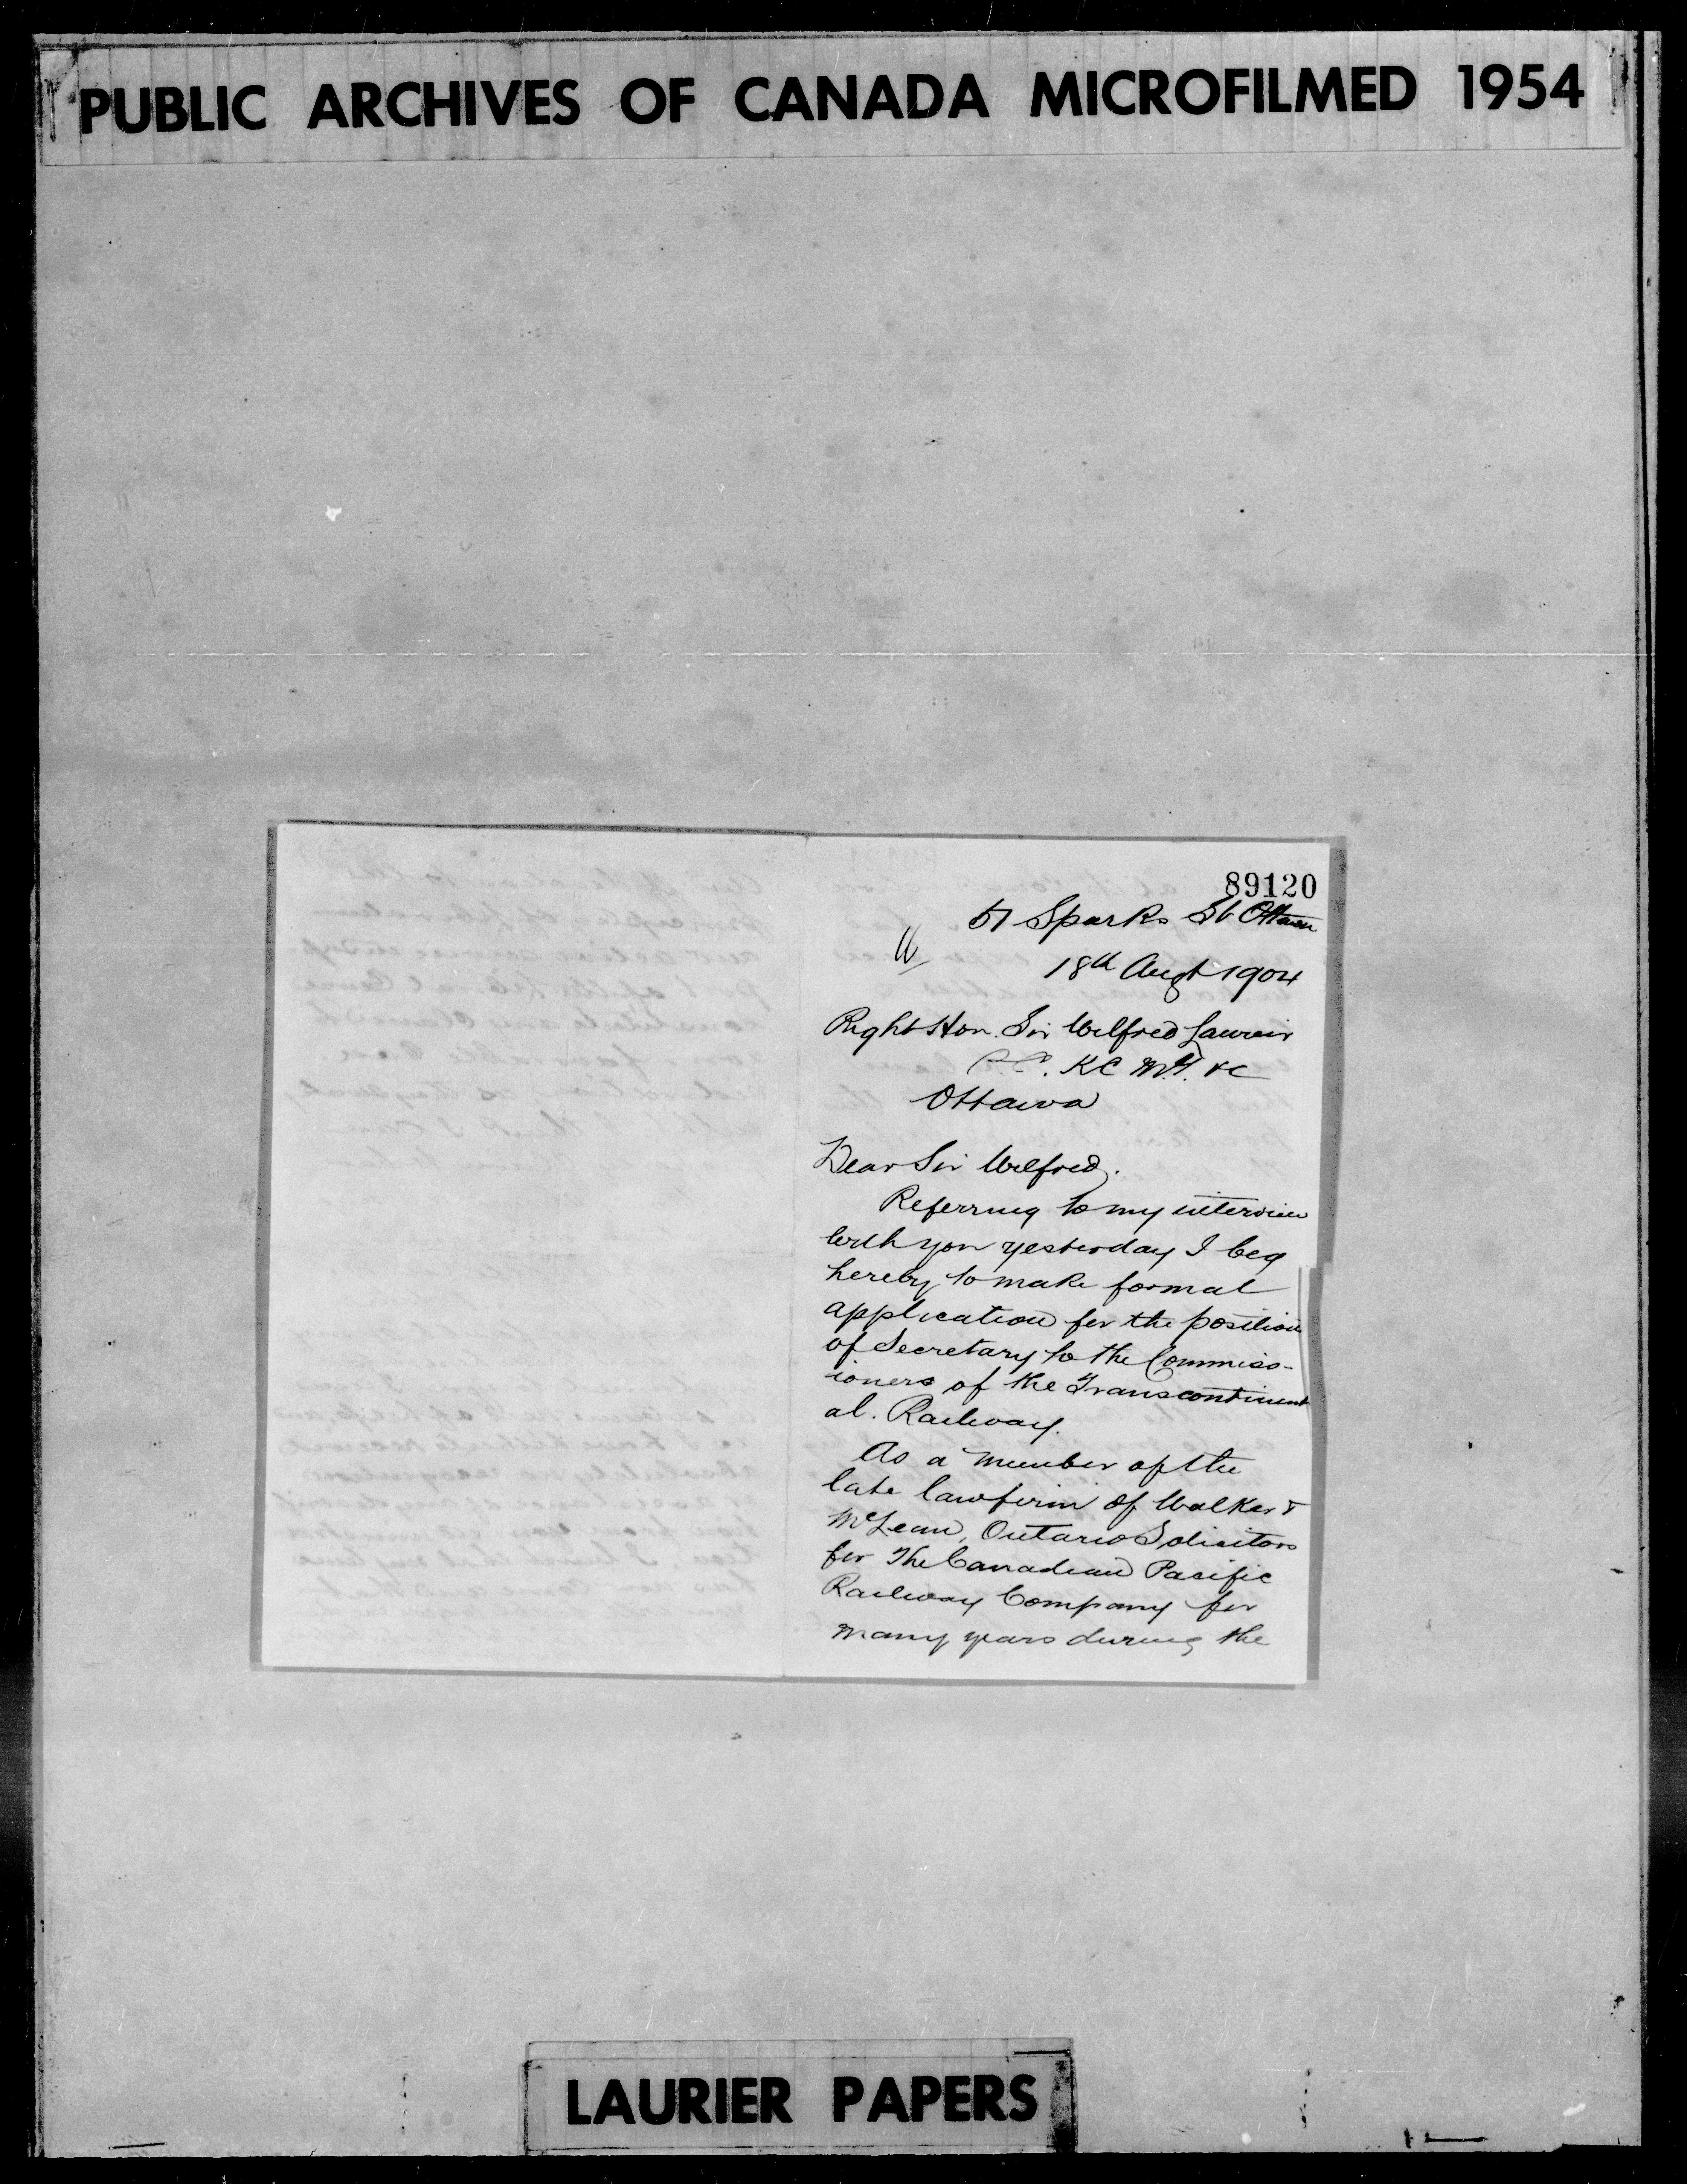 PUBLIC ARCHIVES OF CANADA MICROFILMED 1954
89120
51 Sparks St Ottawa
18th Augt 1904
Right Hon. Sir Wilfred Laureir
P.C. K C M.G. &c
Ottawa
Dear Sir Wilfred,
Referring to my interview
with you yesterday I beg
hereby to make formal
application for the position
of Secretary to the Commiss-
ioners of the Transcontinent
al. Railway.
As a member of the
late lawfirm of Walker &
McLean, Ontario Solicitors
for The Canadian Pacific
Railway Company for
many years during the
LAURIER PAPERS